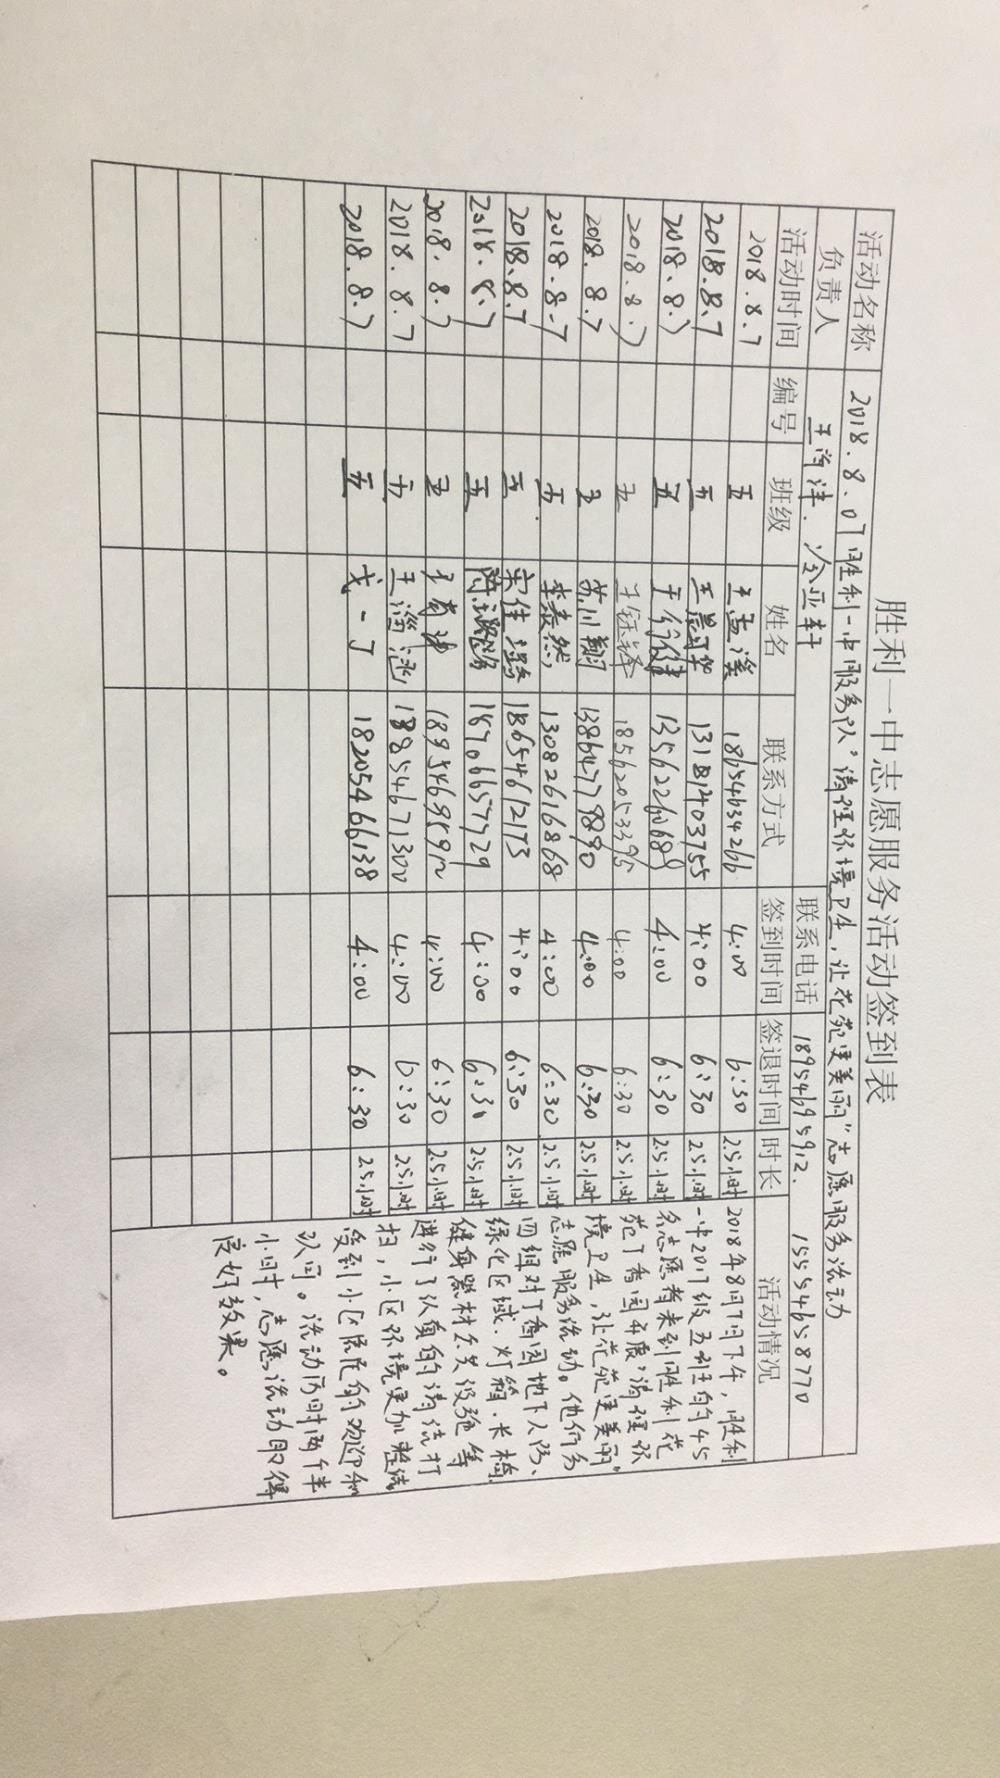 胜利一中志愿服务活动签到表
活动名称 2018.8.07胜利一中服务队"清理环境卫生,让花苑更美丽"志愿服务活动
负责人 联系电话 18954695912. 15554658770
活动时间 编号 班级 姓名 联系方式 签到时间 签退时间 时长 活动情况
2018.8.7 五 18654634266 4:00 6:30 2.5小时
2018.8.7 五 13181403755 4:00 6:30 2.5小时
2018.8.7 五 13562260689 4:00 6:30 2.5小时
2018.8.7 五 18562053395 4:00 6:30 2.5小时
2018.8.7 五 苏川翔 13864779890 4:00 6:30 2.5小时
2018.8.7 五. 李泰然 13082616868 4:00 6:30 2.5小时
2018.8.7 五 宋佳璐 18654612173 4:00 6:30 2.5小时
2018.8.7 五 18706657729 4:00 6:30 2.5小时
2018.8.7 五 18954695912 4:00 6:30 2.5小时
2018.8.7 五 4:00 6:30 2.5小时
2018.8.7 五 戈一丁 18205466138 4:00 6:30 2.5小时
2018年8月7日下午,胜利
一中2017级五班的45
名志愿者来到胜利花
苑丁香园开展"清理环
境卫生,让花苑更美丽"
志愿服务活动。他们分
四组对丁香园地下人防、
绿化区域、灯箱、长椅
健身器材公共设施等
进行了认真的清洁打
扫,小区环境更加整洁
受到小区居民的欢迎和
认可。活动历时两个半
小时,志愿活动取得
良好效果。